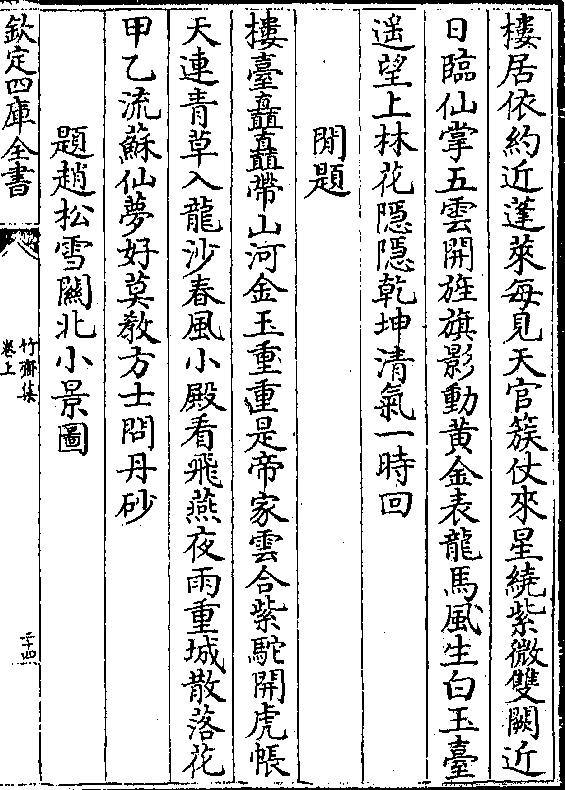 樓居依約近蓬萊每見天官簇仗來星繞紫微雙闕近
日臨仙掌五雲開旌旗影動黃金表龍馬風生白玉臺
遥望上林花隠隠乾坤清氣一時回
閒題
樓臺矗矗帶山河金玉重重是帝家雲合紫駝開虎帳
天連青草入龍沙春風小殿看飛燕夜雨重城散落花
甲乙流蘇仙夢好莫教方士問丹砂
題趙松雪闕北小景圖
欽定四庫全書
竹齋集
卷上
三十四